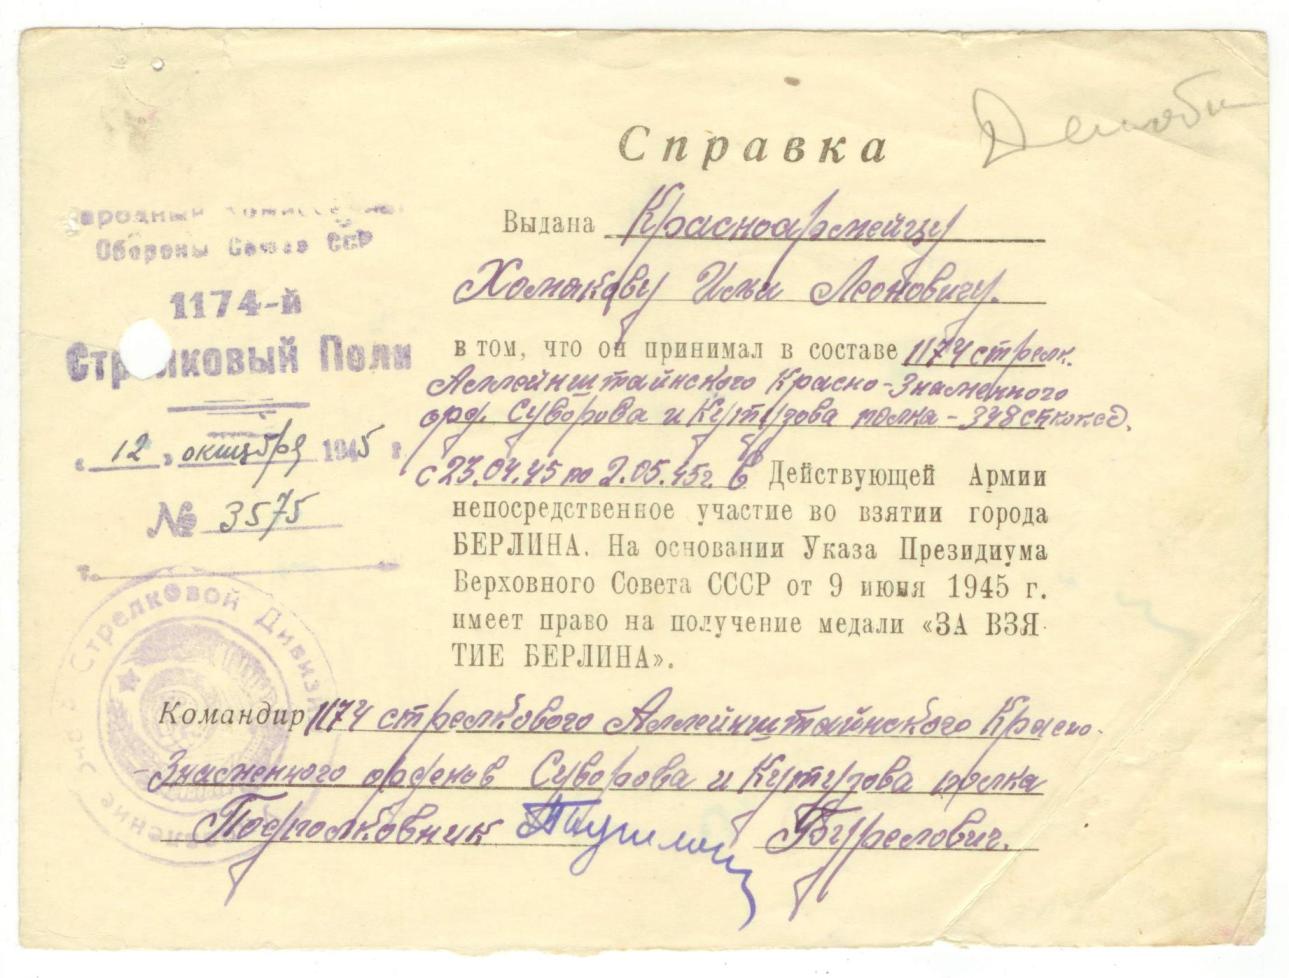 Справка
Народный Комиссариат
Обороны Союза ССР
1174-й
Стрелковый Полк
« 12 » октября 1945 г.
№ 3575
Выдана Красноармейцу
Хомякову Илье Леоновичу.
в том, что он принимал в составе 1174 стрелк.
Алленштайнского Красно-Знаменного
орд. Суворова и Кутузова полка - 348
с 23.04.45 по 2.05.45г. в Действующей Армии
непосредственное участие во взятии города
БЕРЛИНА. На основании Указа Президиума
Верховного Совета СССР от 9 июня 1945 г.
имеет право на получение медали «ЗА ВЗЯ-
ТИЕ БЕРЛИНА».
Стрелковой Дивизи
Командир 1174 стрелкового Аллейнштайнского Красно-
-Знаменного орденов Суворова и Кутузова полка
Подполковник